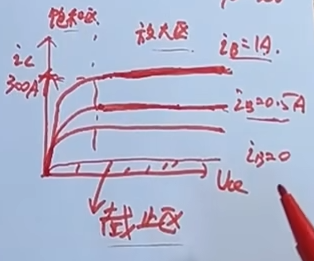 饱和区
放大区
ic
300A
iB=1A.
iB=0.5A
iB=0
Uce
截止区